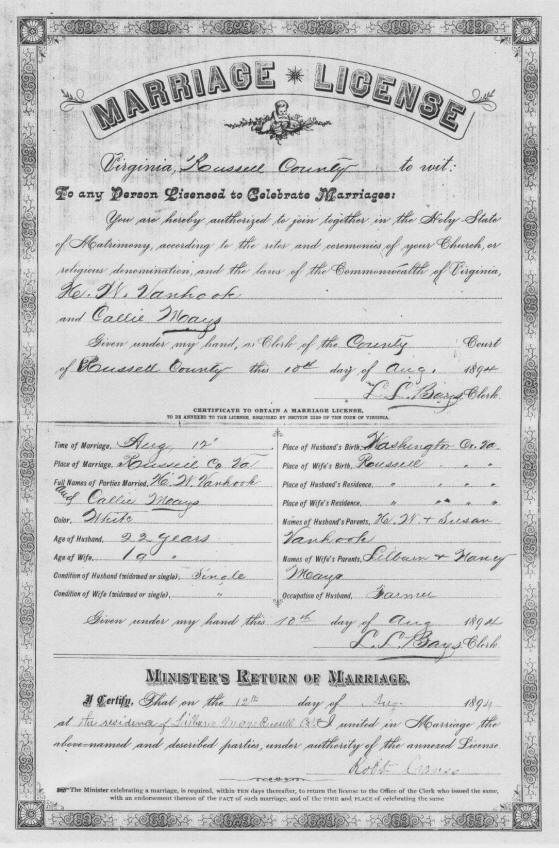 MARRIAGE LICENSE
Virginia, Russell County to wit:
To any Person Licensed to Celebrate Marriages:
You are hereby authorized to join together in the Holy State
of Matrimony, according to the rites and ceremonies of your Church, or
religious denomination, and the laws of the Commonwealth of Virginia,
H. W. Vanhook
and Callie Mays
Given under my hand, as Clerk of the County Court
of Russell County this 10th day of Aug. 1894
L. L. Bays Clerk.
CERTIFICATE TO OBTAIN A MARRIAGE LICENSE,
TO BE ANNEXED TO THE LICENSE, REQUIRED BY SECTION 2229 OF THE CODE OF VIRGINIA.
Time of Marriage, Aug. 12"
Place of Marriage, Russell Co. Va
Full Names of Parties Married, H. W. Vanhook
and Callie Mays
Color, White
Age of Husband, 22 years
Age of Wife, 19 "
Condition of Husband (widowed or single), Single
Condition of Wife (widowed or single), "
Place of Husband's Birth, Washington Co. Va.
Place of Wife's Birth, Russell " "
Place of Husband's Residence, " " "
Place of Wife's Residence, " " " "
Names of Husband's Parents, H. W. & Susan
Vanhook
Names of Wife's Parents, Lilburn & Nancy
Mays
Occupation of Husband, Farmer
Given under my hand this 10th day of Aug 1894
L. L. Bays Clerk
MINISTER'S RETURN OF MARRIAGE.
I Certify, That on the 12th day of Aug. 1894
at the residence of Russell Co. I united in Marriage the
above-named and described parties, under authority of the annexed License.
Robt
The Minister celebrating a marriage, is required, within TEN days thereafter, to return the license to the Office of the Clerk who issued the same,
with an endorsement thereon of the FACT of such marriage, and of the TIME and PLACE of celebrating the same